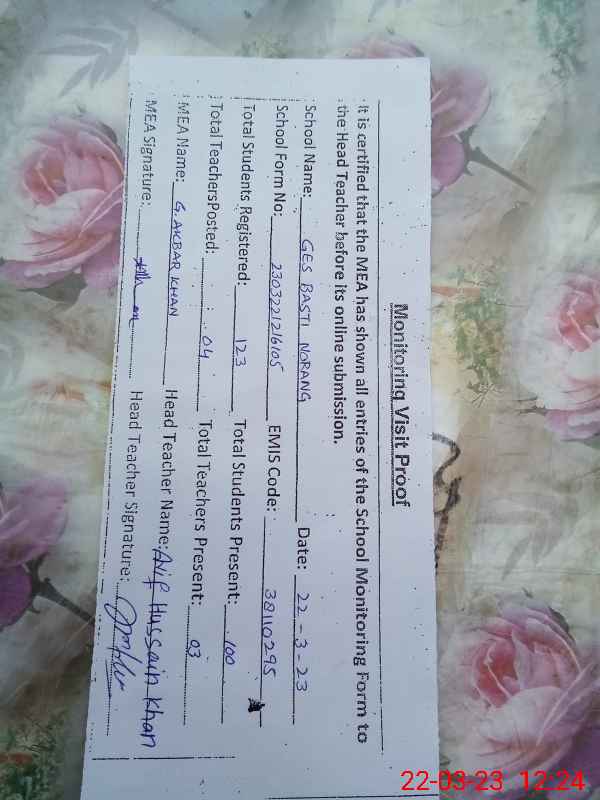 Monitoring Visit Proof
It is certified that the MEA has shown all entries of the School Monitoring Form to
the Head Teacher before its online submission.
School Name: GES BASTI NORANG Date: 22-3-23
School Form No: 2303221216105 EMIS Code: 38110295
Total Students Registered: 123 Total Students Present: 100
Total TeachersPosted: 04 Total Teachers Present: 03
MEA Name: G. AKBAR KHAN Head Teacher Name: Arif Hussain Khan
MEA Signature: Head Teacher Signature:
22-03-23 12:24